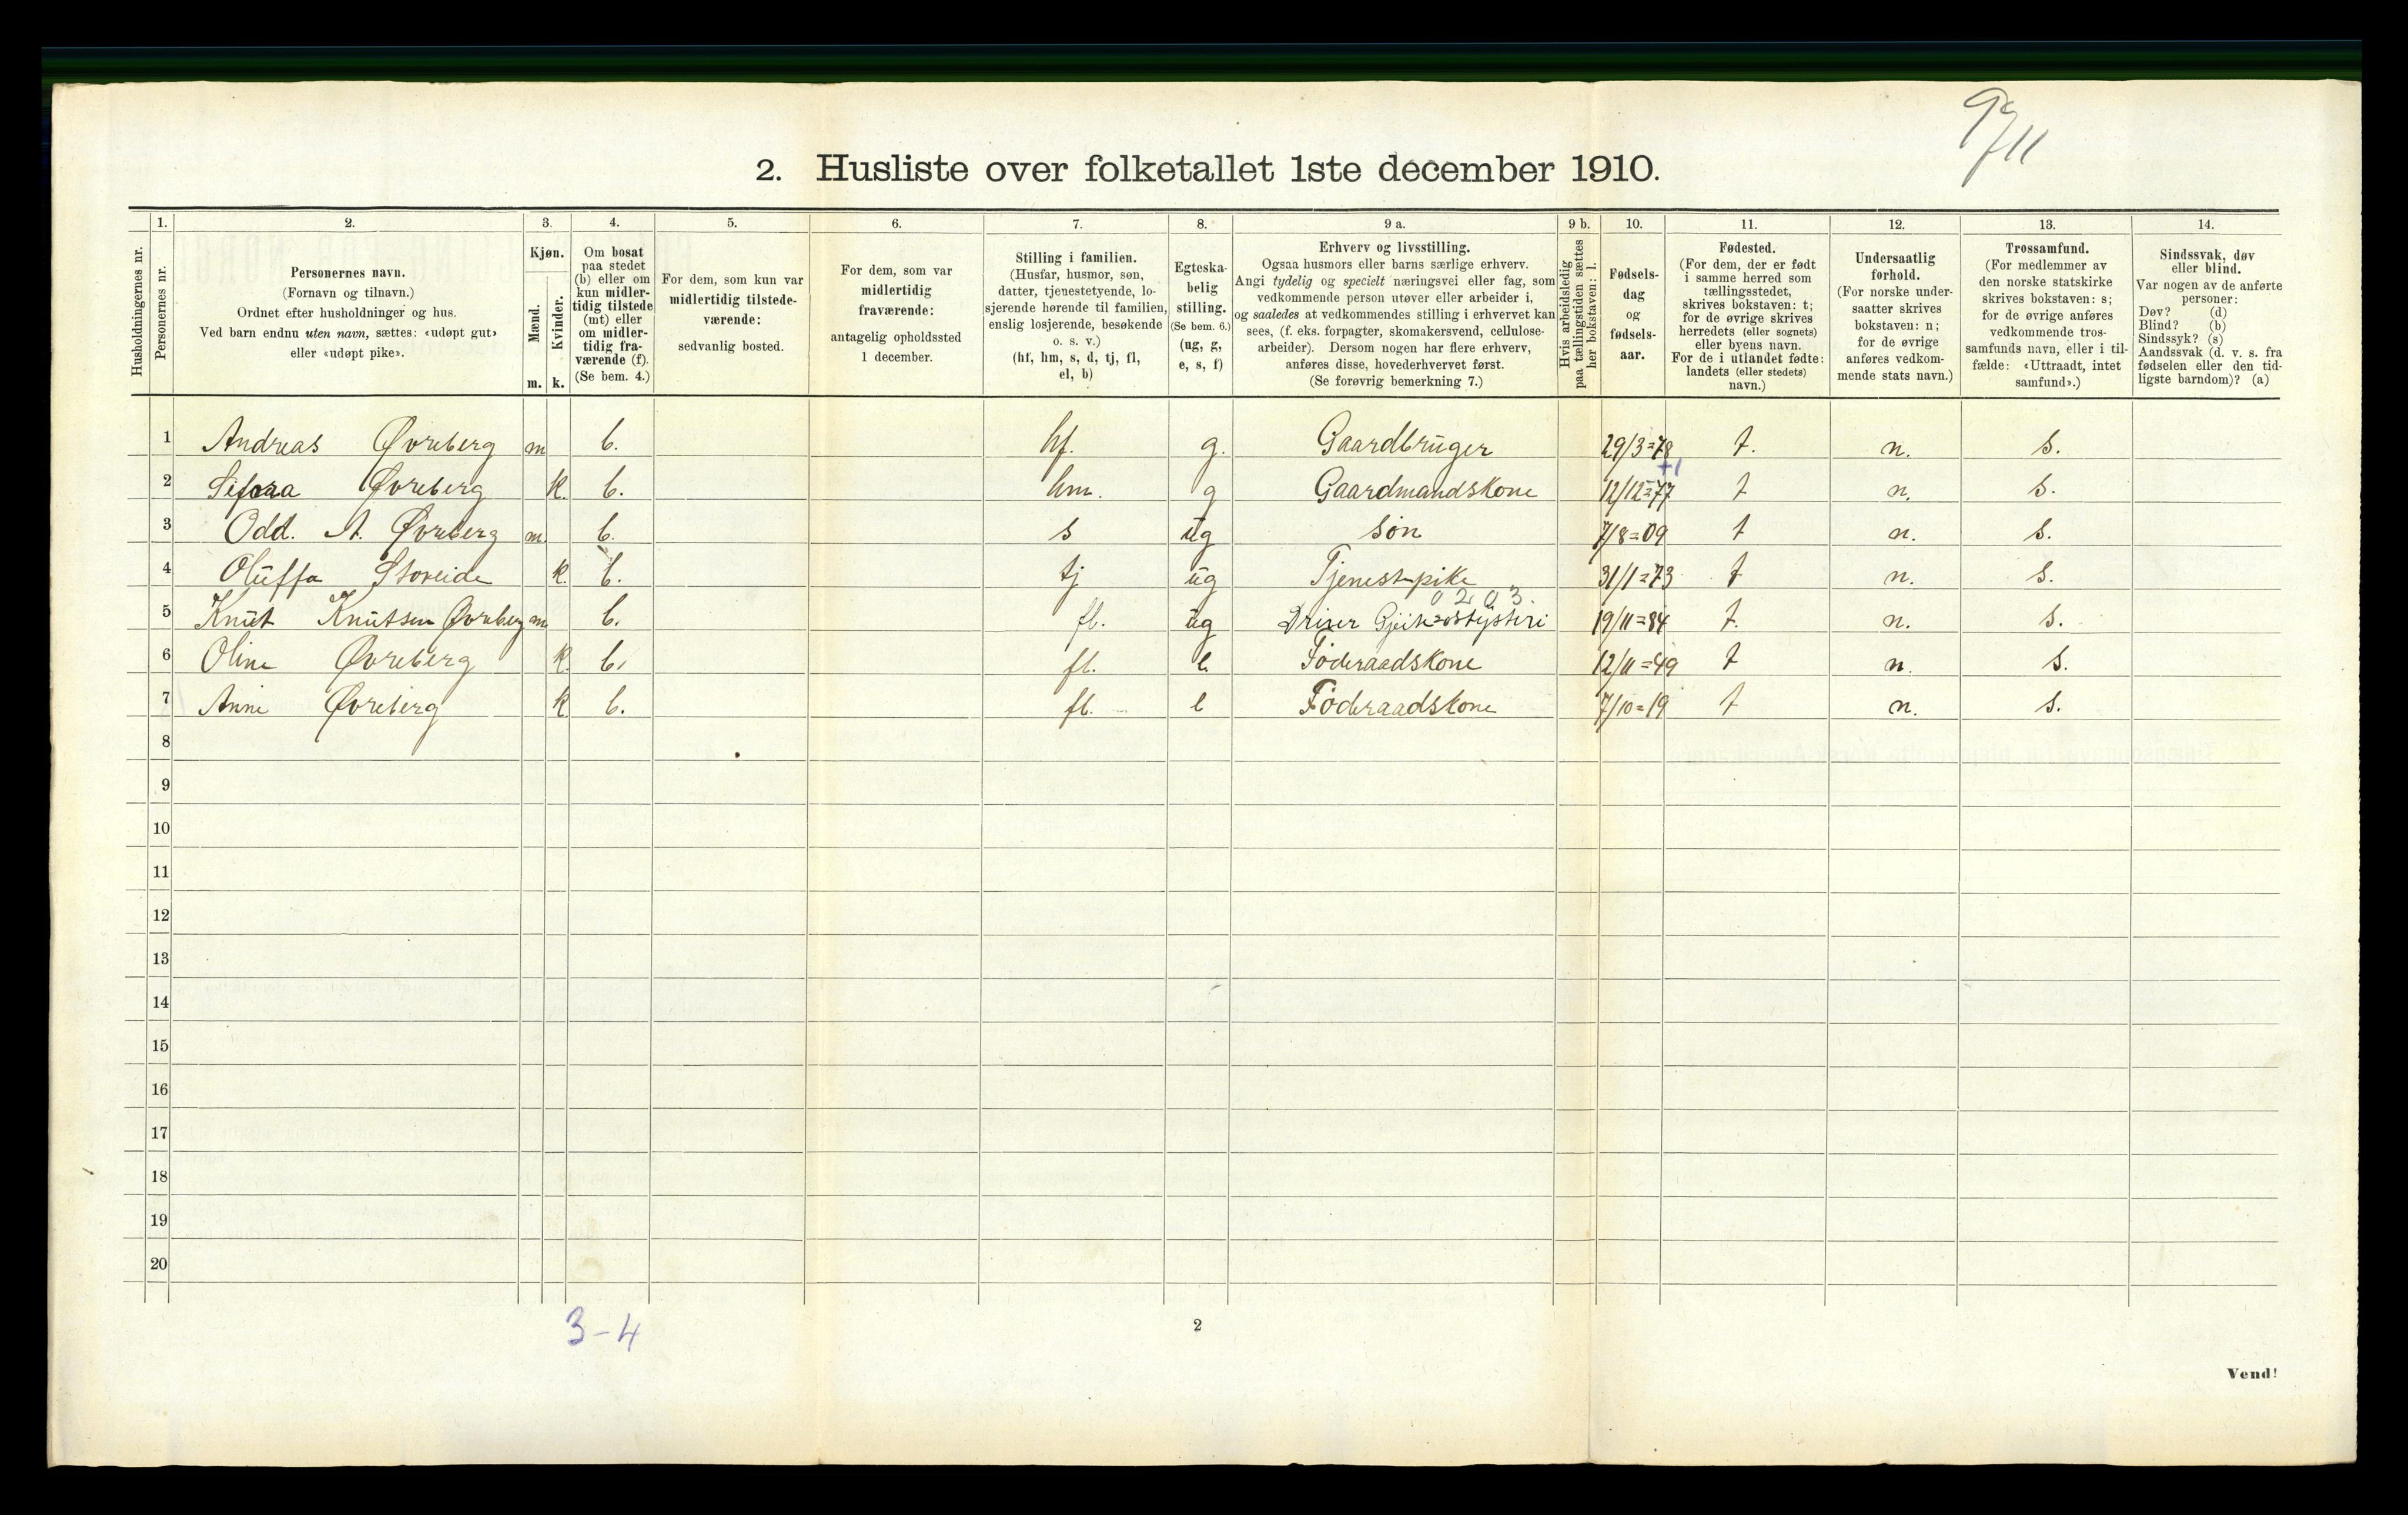 2. Husliste over folketallet 1ste december 1910.
Husholdningernes nr.
1. Personernes nr.
2. Personernes navn.
(Fornavn og tilnavn.)
Ordnet efter husholdninger og hus.
Ved barn endnu uten navn, sættes: «udøpt gut»
eller «udøpt pike».
3. Kjøn.
Mænd. m.
Kvinder. k.
4. Om bosat
paa stedet
(b) eller om
kun midler-
tidig tilstede
(mt) eller
om midler-
tidig fra-
værende (f).
(Se bem. 4.)
5. For dem, som kun var
midlertidig tilstede-
værende:
sedvanlig bosted.
6. For dem, som var
midlertidig
fraværende:
antagelig opholdssted
1 december.
7. Stilling i familien.
(Husfar, husmor, søn,
datter, tjenestetyende, lo-
sjerende hørende til familien,
enslig losjerende, besøkende
o. s. v.)
(hf, hm, s, d, tj, fl,
el, b)
8. Egteska-
belig
stilling.
(Se bem. 6.)
(ug, g,
e, s, f)
9 a. Erhverv og livsstilling.
Ogsaa husmors eller barns særlige erhverv.
Angi tydelig og specielt næringsvei eller fag, som
vedkommende person utøver eller arbeider i,
og saaledes at vedkommendes stilling i erhvervet kan
sees, (f. eks. forpagter, skomakersvend, cellulose-
arbeider). Dersom nogen har flere erhverv,
anføres disse, hovederhvervet først.
(Se forøvrig bemerkning 7.)
9 b. Hvis arbeidsledig
paa tællingstiden sættes
her bokstaven: l.
10. Fødsels-
dag
og
fødsels-
aar.
11. Fødested.
(For dem, der er født
i samme herred som
tællingsstedet,
skrives bokstaven: t;
for de øvrige skrives
herredets (eller sognets)
eller byens navn.
For de i utlandet fødte:
landets (eller stedets)
navn.)
12. Undersaatlig
forhold.
(For norske under-
saatter skrives
bokstaven: n;
for de øvrige
anføres vedkom-
mende stats navn.)
13. Trossamfund.
(For medlemmer av
den norske statskirke
skrives bokstaven: s;
for de øvrige anføres
vedkommende tros-
samfunds navn, eller i til-
fælde: «Uttraadt, intet
samfund».)
14. Sindssvak, døv
eller blind.
Var nogen av de anførte
personer:
Døv? (d)
Blind? (b)
Sindssyk? (s)
Aandssvak (d. v. s. fra
fødselen eller den tid-
ligste barndom)? (a)
1 Andreas Øvreberg m b. hf. g. Gaardbruger 29/3=78 t. n. s.
+1
2 Sefora Øvreberg k. b. hm. g Gaardmandskone 12/12=77 t n. s.
3 Odd. A. Øvreberg m b. s ug søn 7/8=09 t n. s.
4 Oluffa Storeide k. b. tj ug Tjenestpike 31/1=73 t n. s.
0203.
5 Knut Knutsen Øvreberg m b. fl. ug Driver Gjeit=ostysteri 19/11=84 t. n. s.
6 Oline Øvreberg k. b. fl. e. Føderaadskone 12/11=49 t n. s.
7 Anne Øvreberg k b. fl. e Føderaadskone 7/10=19 t n. s.
8
9
10
11
12
13
14
15
16
17
18
19
20
3-4
2
Vend!